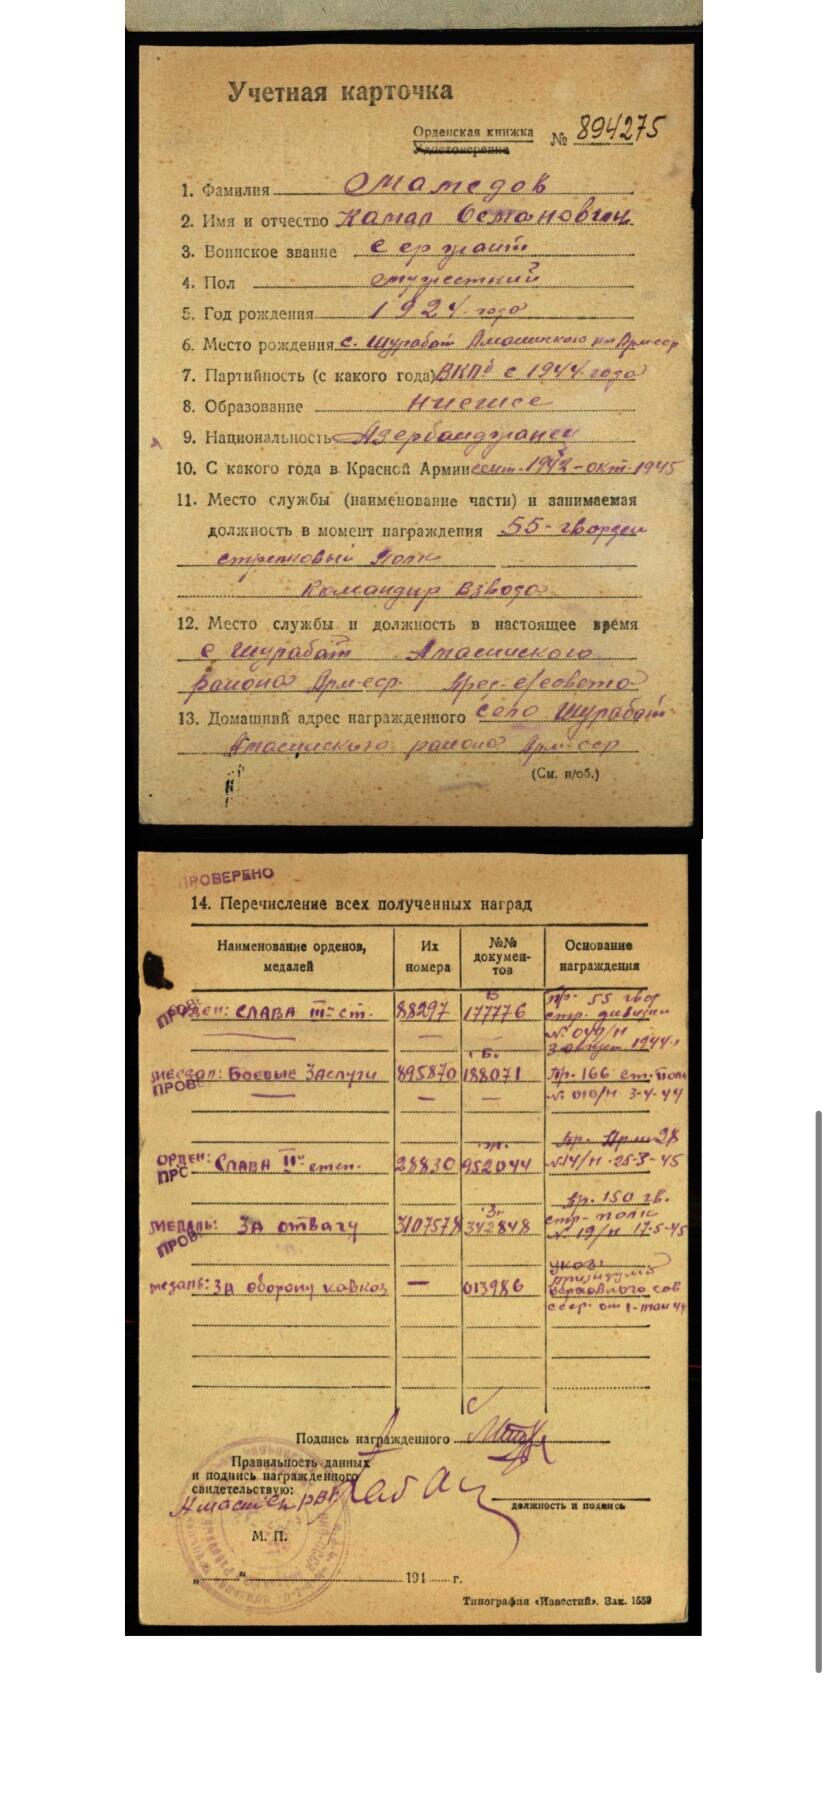 Учетная карточка
Орденская книжка
Удостоверение
№ 894275
1. Фамилия Мамедов
2. Имя и отчество Камал Османович
3. Воинское звание сержант
4. Пол мужсткий
5. Год рождения 1924 года
6. Место рождения с. Шурабат Амасинского рн Арм сср
7. Партийность (с какого года) ВКПб с 1944 года
8. Образование
9. Национальность Азербайджанец
10. С какого года в Красной Армии сент-1942-окт-1945
11. Место службы (наименование части) и занимаемая
должность в момент награждения 55-гвардеи
стрелковый Полк
Командир Взвода
12. Место службы и должность в настоящее время
с Шурабат Амасинского
района Арм-сср- Пред-с/совета
13. Домашний адрес награжденного село Шурабат
Амасинского района Арм-сср
(См. н/об.)
ПРОВЕРЕНО
14. Перечисление всех полученных наград
Наименование орденов, медалей
Их номера
№№ документов
Основание награждения
ОРДЕН: СЛАВА III ст. 88297 Б 177776 пр. 55 гвор стр. дивизии № 049/Н 3 август 1944г
медал: Боевые Заслуги 895870 Б 188071 Пр-166 ст. полк № 010/Н 3-4-44
ОРДЕН: СЛАВА II степ. 28830 952044 Пр. Арм 28 №14/Н-25-3-45
МЕДАЛЬ: За отвагу 3107578 342848 Пр. 150 гв. стр-полк № 19/Н 17-5-45
медаль: За оборону кавказ — 013986 указ президума Верховного сов ссср. от 1-маи 44
Подпись награжденного
Правильность данных
и подпись награжденного
свидетельствую:
должность и подпись
М. П.
„ “ 194 г.
Типография «Известий». Зак. 1559